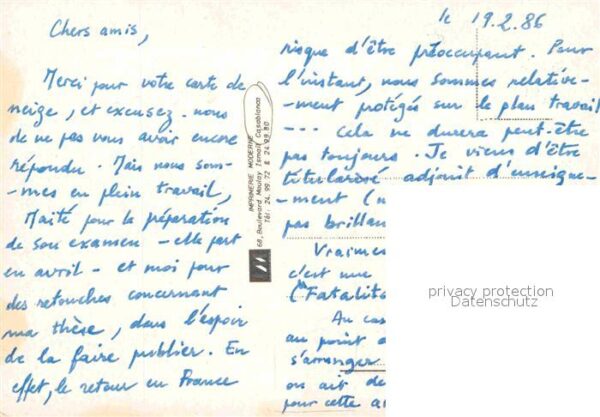 le 19.2.86
Chers amis,
Merci pour votre carte de
neige, et excusez-nous
de ne pas vous avoir encore
répondu. Mais nous som-
-mes en plein travail,
Maïté pour la préparation
de son examen - elle part
en avril - et moi pour
des retouches concernant
ma thèse, dans l'espoir
de la faire publier. En
effet, le retour en France
IMPRIMERIE MODERNE
68, Boulevard Moulay Ismaïl Casablanca
Tél: 24.99.72 & 24.98.80
risque d'être préoccupant. Pour
l'instant, nous sommes relative-
-ment protégés sur le plan travail
--- Cela ne durera peut-être
pas toujours. Je viens d'être
titularisé adjoint d'enseigne-
-ment (
pas brillan
Vraimen
c'est une
("Fatalita
Au cas
au point d
s'arranger
on ait de
pour cette a
privacy protection
Datenschutz